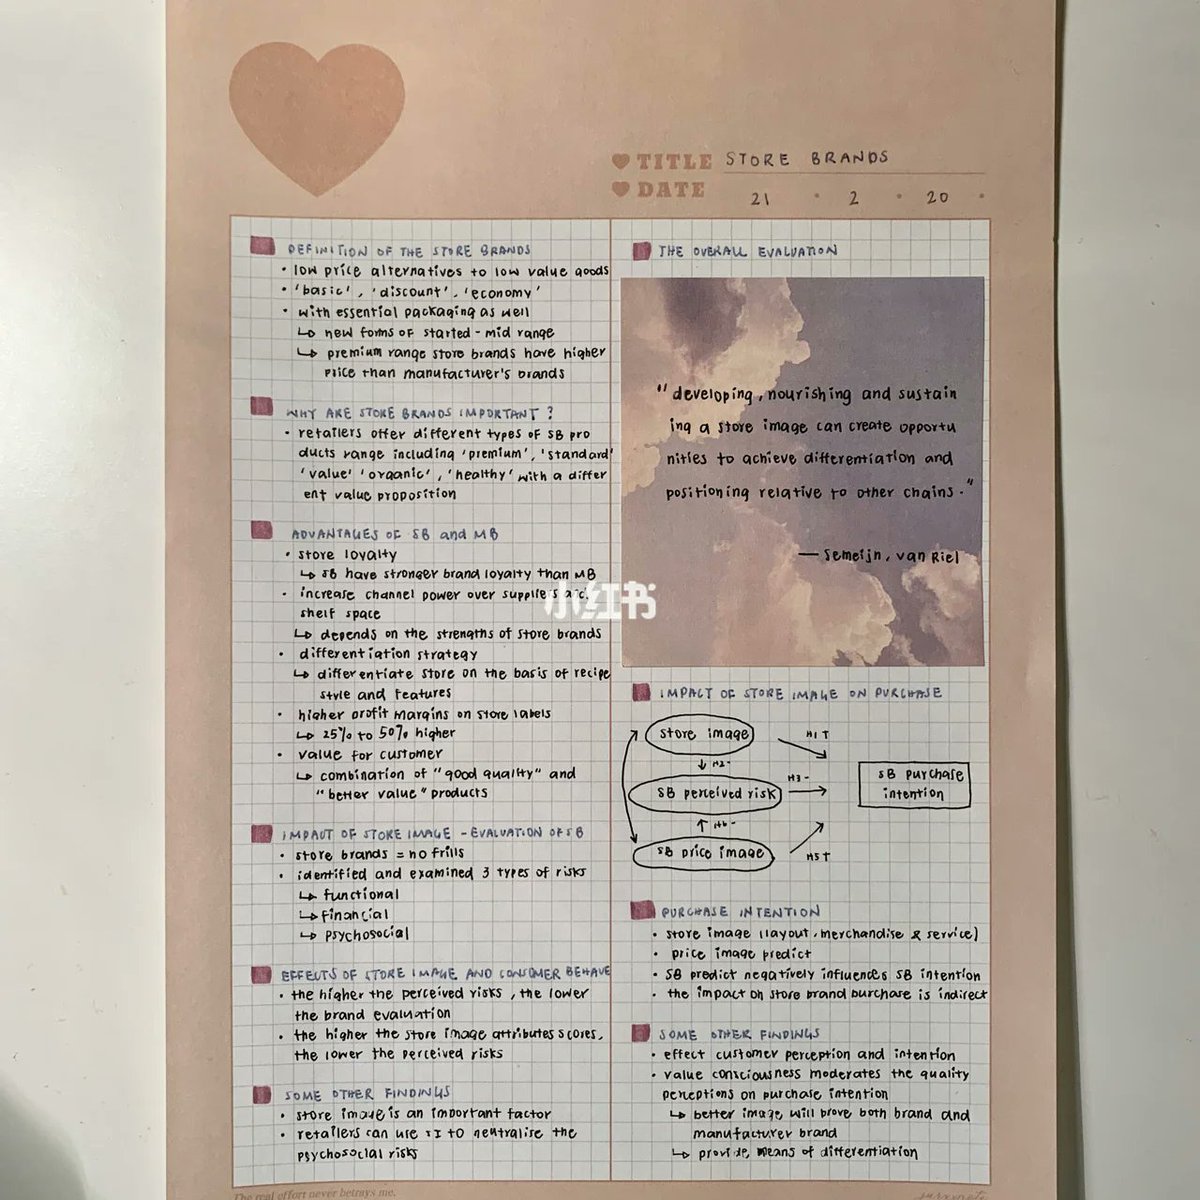 TITLE STORE BRANDS
DATE 21 • 2 • 20 •
DEFINITION OF THE STORE BRANDS
• low price alternatives to low value goods
• 'basic', 'discount', 'economy'
• with essential packaging as well
↳ new forms of started - mid range
↳ premium range store brands have higher
price than manufacturer's brands
WHY ARE STORE BRANDS IMPORTANT?
• retailers offer different types of SB pro
ducts range including 'premium', 'standard'
'value' 'organic', 'healthy' with a differ
ent value proposition
ADVANTAGES OF SB and MB
• store loyalty
↳ SB have stronger brand loyalty than MB
• increase channel power over suppliers
shelf space
↳ depends on the strengths of store brands
• differentiation strategy
↳ differentiate store on the basis of recipe
style and features
• higher profit margins on store labels
↳ 25% to 50% higher
• value for customer
↳ combination of "good quality" and
"better value" products
IMPACT OF STORE IMAGE - EVALUATION OF SB
• store brands = no frills
• identified and examined 3 types of risks
↳ functional
↳ financial
↳ psychosocial
EFFECTS OF STORE IMAGE AND CONSUMER BEHAVE
• the higher the perceived risks, the lower
the brand evaluation
• the higher the store image attributes scores,
the lower the perceived risks
SOME OTHER FINDINGS
• store image is an important factor
• retailers can use SI to neutralise the
psychosocial risks
THE OVERALL EVALUATION
"developing, nourishing and sustain
ing a store image can create opportu
nities to achieve differentiation and
positioning relative to other chains."
— Semeijn, van Riel
小红书
IMPACT OF STORE IMAGE ON PURCHASE
store image
H1 T
H2-
SB perceived risk
H3 -
SB purchase
intention
H6-
SB price image
H5 T
PURCHASE INTENTION
• store image (layout, merchandise & service)
• price image predict
• SB predict negatively influences SB intention
• the impact on store brand purchase is indirect
SOME OTHER FINDINGS
• effect customer perception and intention
• value consciousness moderates the quality
perceptions on purchase intention
↳ better image will prove both brand and
manufacturer brand
↳ provide means of differentiation
The real effort never betrays me.